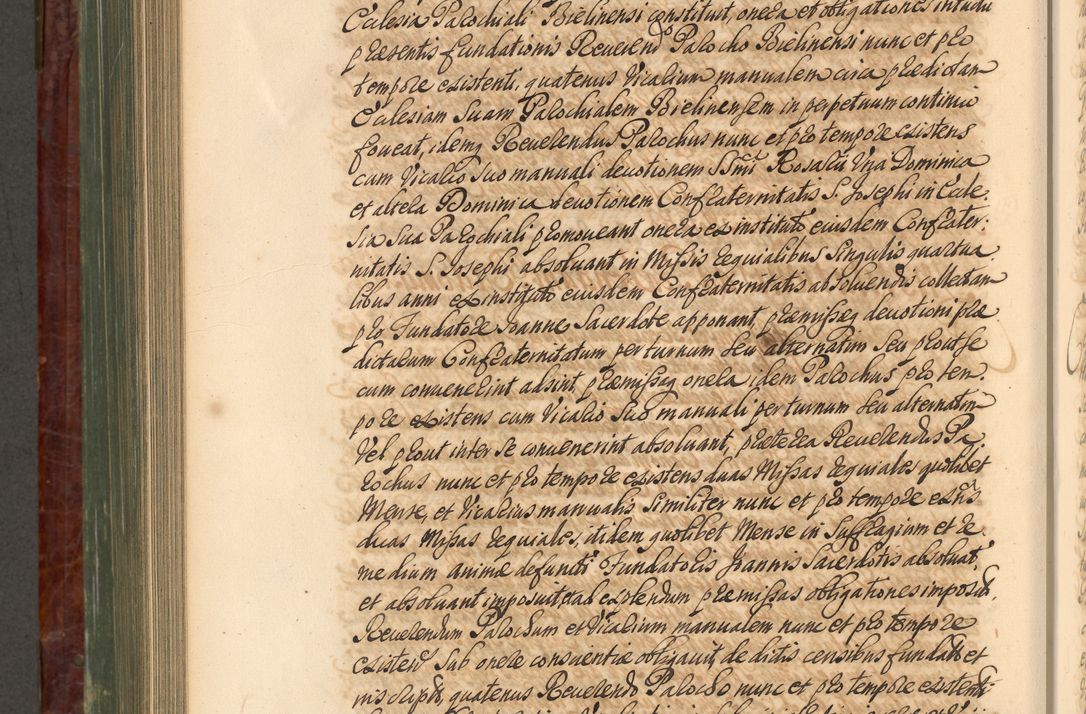 Ecclesia Parochiali Bielinensi constituit, onera et obligationes intuitu
præsentis fundationis Reverendo Parocho Bielinensi nunc et pro
tempore existenti, quatenus Vicarium manualem circa prædictam
Ecclesiam suam Parochialem Bielinensem in perpetuum continuo
foveat, idemq Reverendus Parochus nunc et pro tempore existens
cum Vicario suo manuali devotionem SSmi Rosarii Una Dominica
et altera Dominica devotionem Confraternitatis S. Josephi in Eccle:
sia sua Parochiali promoveant onera ex instituto eiusdem Confrater:
nitatis S. Josephi absolvant in Missis requialibus singulis quartua
libus anni ex instituto eiusdem Confraternitatis absolvendis collectam
pro Fundatore Joanne Sacerdote apponant, præmissæq devotioni præ
dictarum Confraternitatum per turnum seu alternatim seu prout se
cum convenerint adsint, præmissaq onera idem Parochus pro tem:
pore existens cum Vicario suo manuali per turnum seu alternatim
Vel prout inter se convenerint absolvant, præterea Reverendus Pa:
rochus nunc et pro tempore existens duas Missas requiales quolibet
Mense, et Vicarius manualis similiter nunc et pro tempore exñs
duas Missas requiales, itidem quolibet Mense in Suffragium et re:
medium animæ defuncti Fundatoris Joannis Sacerdotis absolvat,
et absolvant imposuit, et ad explendum præmissas obligationes impositas,
Reverendum Parochum et Vicarium manualem nunc et pro tempore
existen sub onere conscientiæ obligavit, de ditis censibus fundatis et
inscriptis, quatenus Reverendo Parocho nunc et pro tempore existenti